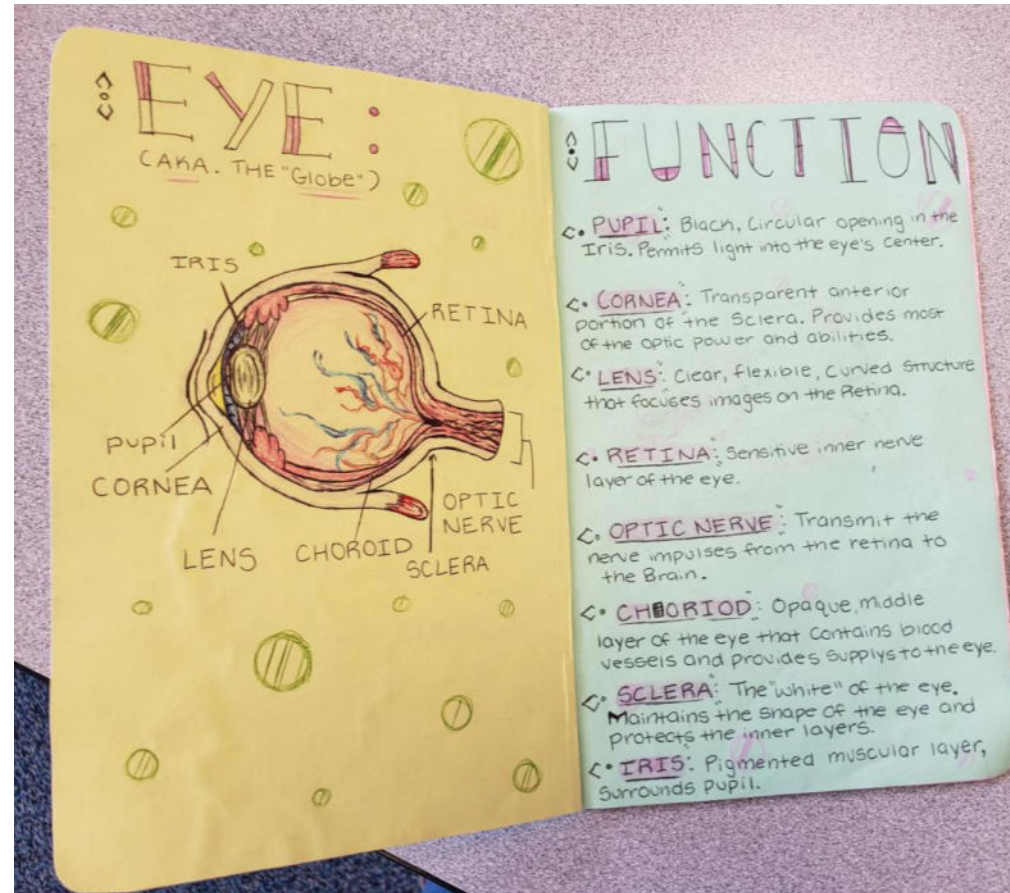 EYE:
(AKA. THE "Globe")
IRIS
RETINA
pupil
CORNEA
LENS
CHOROID
SCLERA
OPTIC
NERVE
FUNCTION
PUPIL: Black, Circular opening in the
Iris. Permits light into the eye's center.
CORNEA: Transparent anterior
portion of the Sclera. Provides most
of the optic power and abilities.
LENS: Clear, flexible, curved structure
that focuses images on the Retina.
RETINA: Sensitive inner nerve
layer of the eye.
OPTIC NERVE: Transmit the
nerve impulses from the retina to
the Brain.
CHORIOD: Opaque, middle
layer of the eye that contains blood
vessels and provides supplys to the eye.
SCLERA: The "white" of the eye.
Maintains the shape of the eye and
protects the inner layers.
IRIS: Pigmented muscular layer,
surrounds pupil.